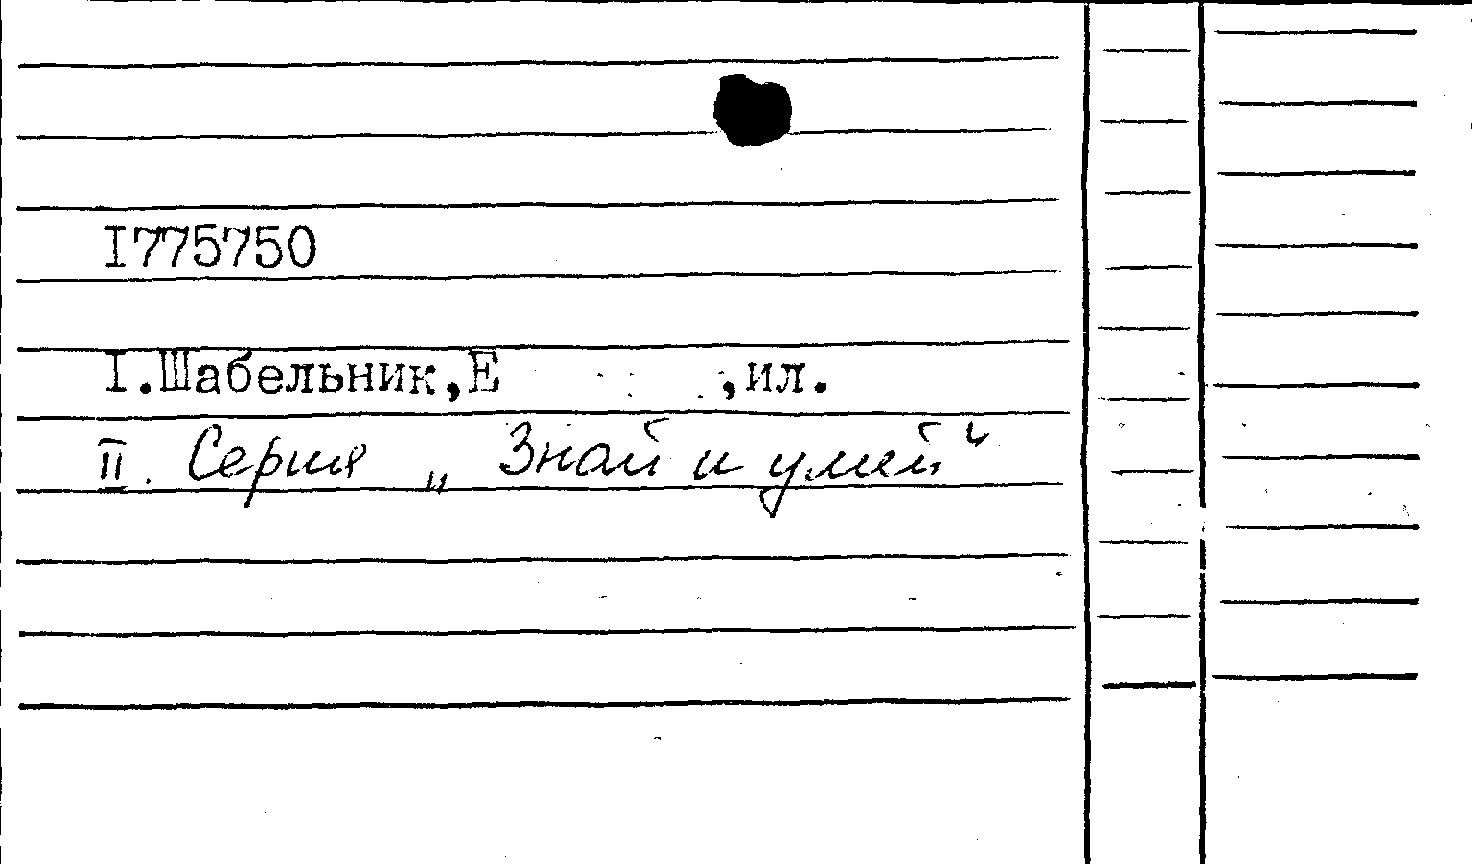 I775750
I.Шабельник,Е ,ил.
II. Серия „Знай и умей"